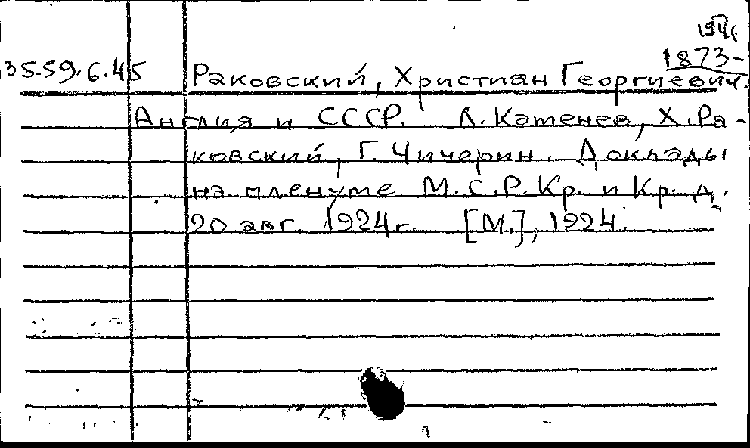 1941
1873-
35-59.6.45 Раковский, Христиан Георгиевич.
Англия и СССР. Л. Каменев, Х. Ра-
ковский, Г. Чичерин. Доклады
на пленуме М.С.Р.Кр. и Кр. д.
20 авг. 1924 г. [М.], 1924.